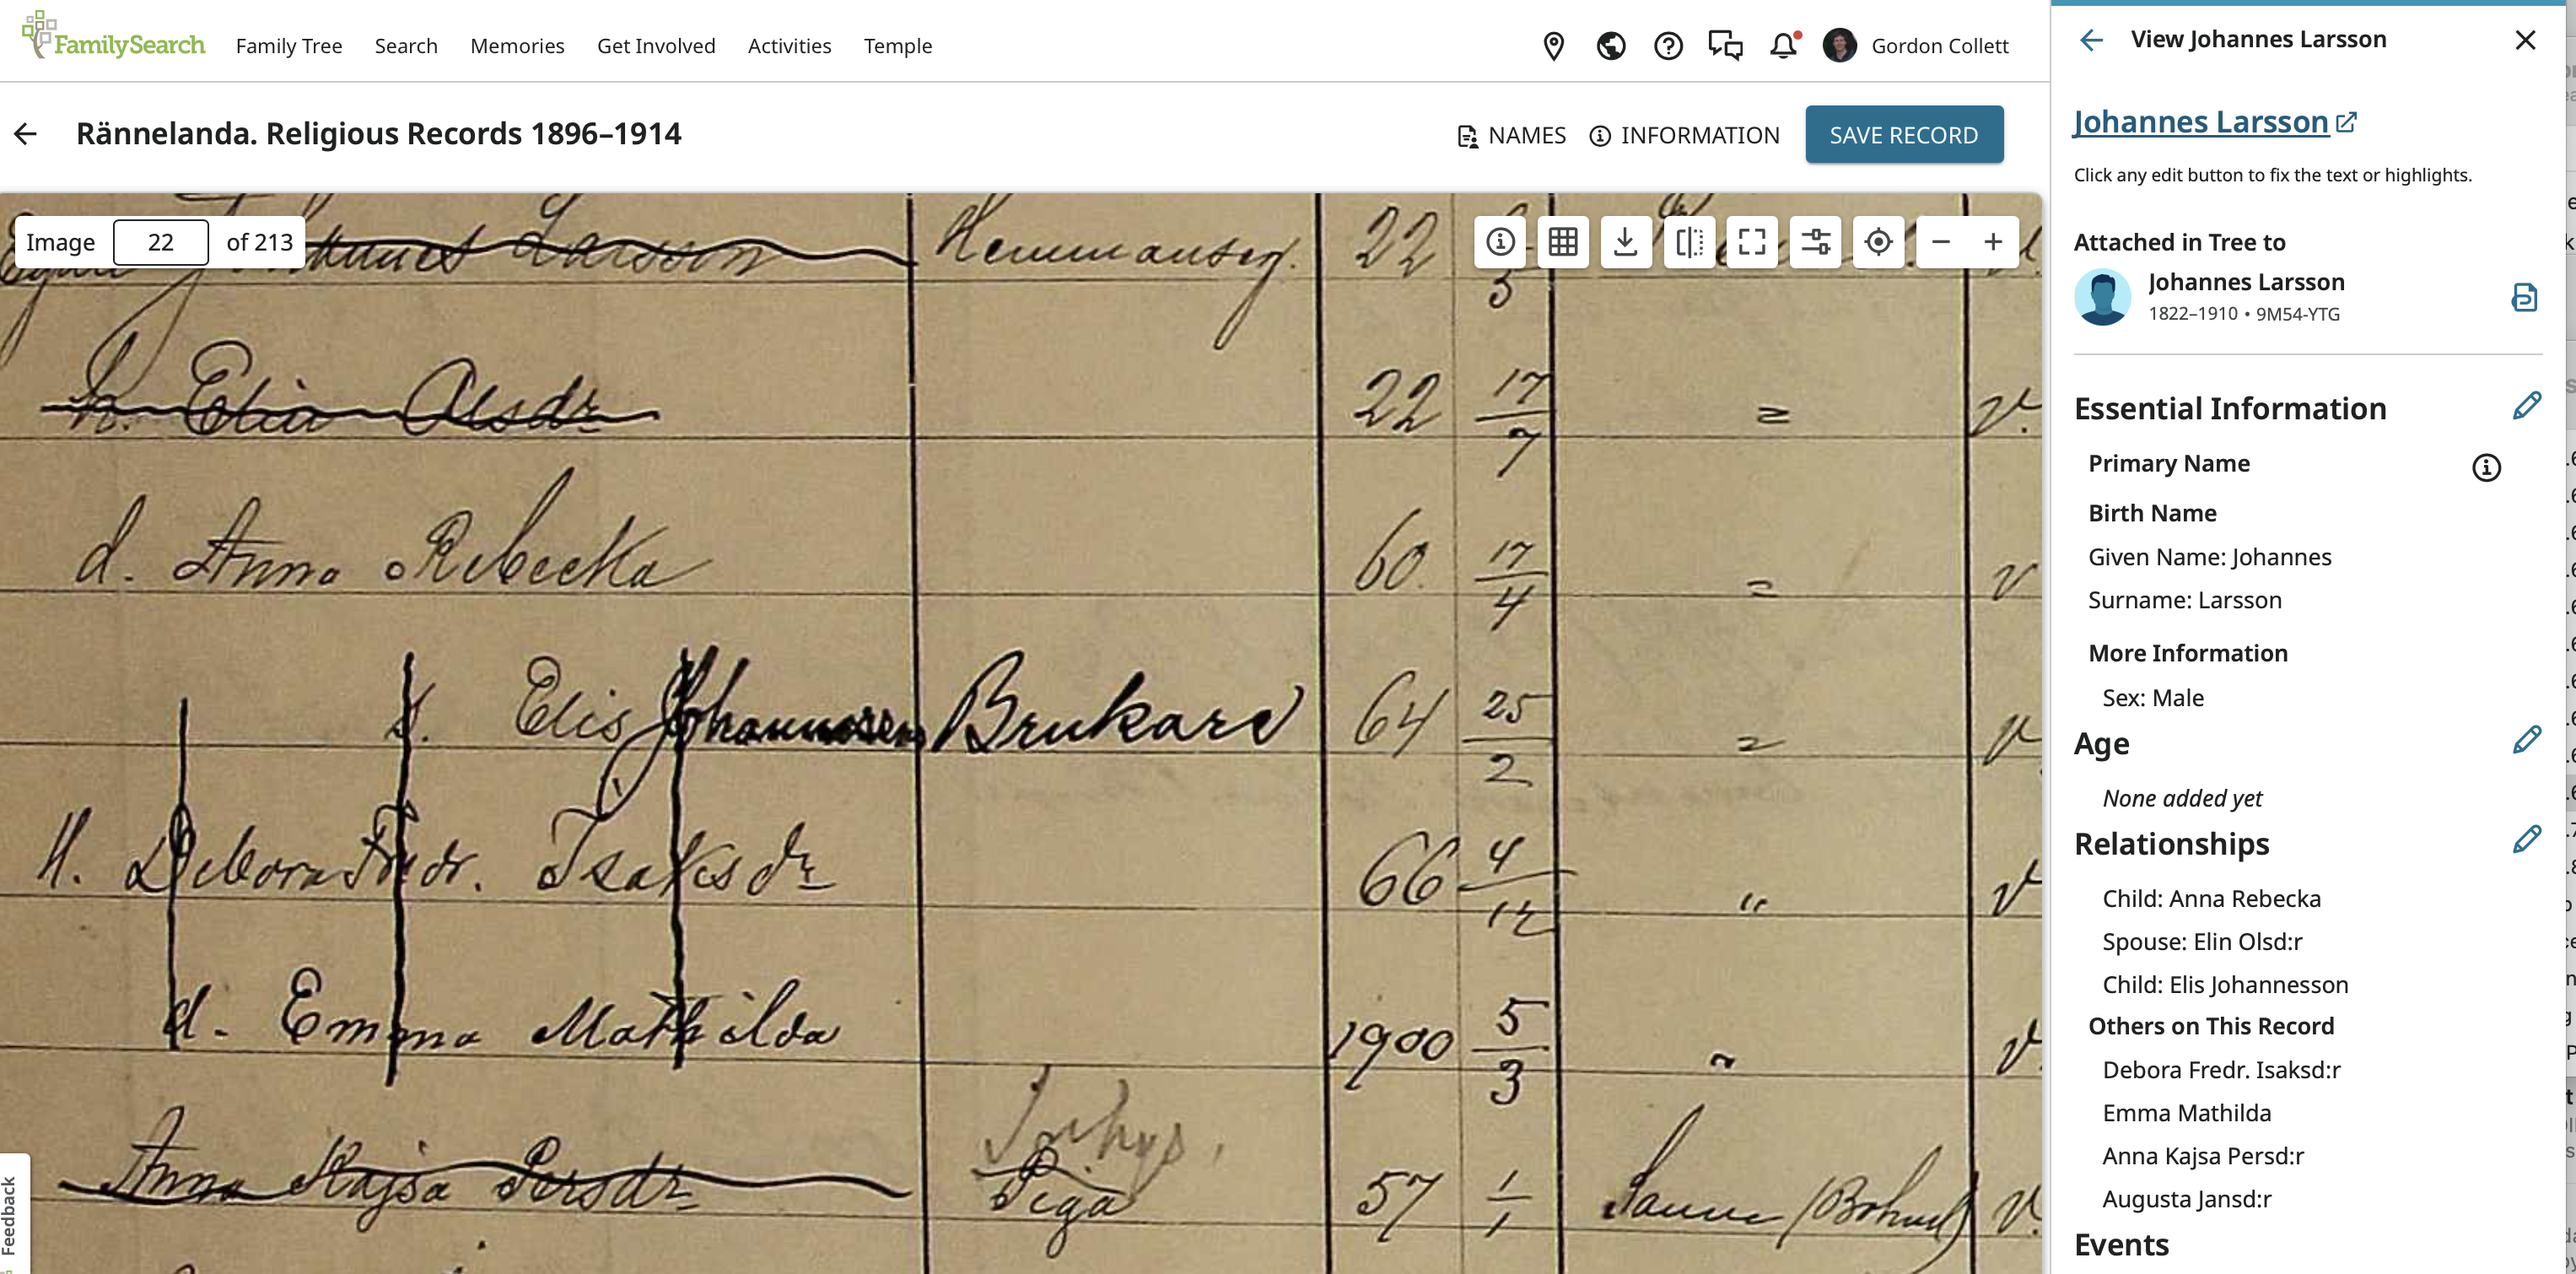 FamilySearch Family Tree Search Memories Get Involved Activities Temple Gordon Collett
Rännelanda. Religious Records 1896–1914 NAMES INFORMATION SAVE RECORD
Image 22 of 213
Johannes Larsson Hemmanseg. 22 5
h. Elin Olsdr 22 17/7 = v.
d. Anna Rebecka 60. 17/4 = v
s. Elis Johannessen Brukare 64 25/2 = v
H. Debora Fredr. Isaksdr 66 4/12 " v
d. Emma Mathilda 1900 5/3 " v
Inhys.
Anna Kajsa Persdr Piga 57 1/1 Sanne (Bohusl) v.
Feedback
View Johannes Larsson
Johannes Larsson
Click any edit button to fix the text or highlights.
Attached in Tree to
Johannes Larsson
1822–1910 • 9M54-YTG
Essential Information
Primary Name
Birth Name
Given Name: Johannes
Surname: Larsson
More Information
Sex: Male
Age
None added yet
Relationships
Child: Anna Rebecka
Spouse: Elin Olsd:r
Child: Elis Johannesson
Others on This Record
Debora Fredr. Isaksd:r
Emma Mathilda
Anna Kajsa Persd:r
Augusta Jansd:r
Events